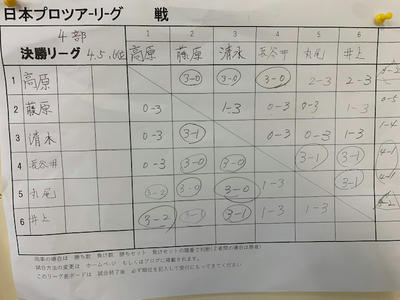 日本プロツアーリーグ 戦
4部
決勝リーグ 4.5.6位
1 2 3 4 5 6
高原 藤原 清水 長谷井 丸尾 井上
1 高原 3-0 3-0 3-0 2-3 2-3 3-2
2 藤原 0-3 1-3 0-3 0-3 1-3 0-5
3 清水 0-3 3-1 0-3 0-3 1-3 1-4
4 長谷井 0-3 3-0 3-0 3-1 3-1 4-1
5 丸尾 3-2 3-0 3-0 1-3 3-1 4-1
6 井上 3-2 3-1 3-1 1-3 1-3
同率の場合は 勝ち数 負け数 勝ちセット 負けセットの順番で判断(2者間の場合は勝者)
試合方法の変更は ホームページ もしくはブログに掲載されます。
このリーグ表ボードは 試合終了後 必ず順位を記入して受付にもってきてください